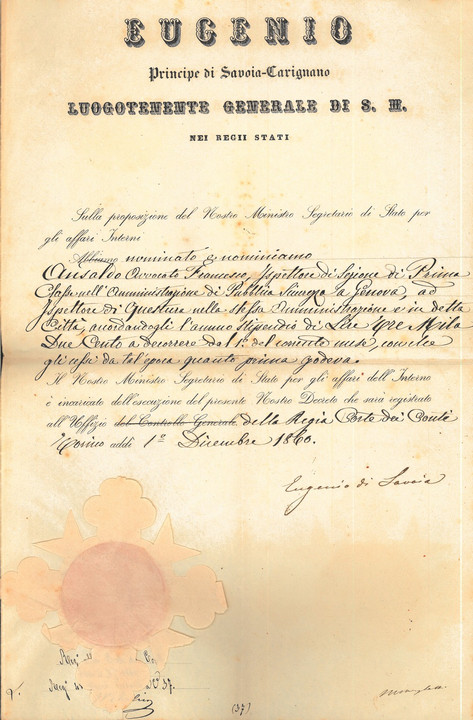 EUGENIO
Principe di Savoia-Carignano
LUOGOTENENTE GENERALE DI S. M.
NEI REGII STATI
Sulla proposizione del Nostro Ministro Segretario di Stato per
gli affari Interni
Abbiamo nominato e nominiamo
Ansaldo Avvocato Francesco, Ispettore di Sezione di Prima
Classe nell'Amministrazione di Pubblica Sicurezza a Genova, ad
Ispettore di Questura nella stessa Amministrazione e in detta
Città, accordandogli l'annuo stipendio di Lire Tre Mila
Due Cento a decorrere dal 1º del corrente mese, con che
gli cessi da tal epoca quanto prima godeva.
Il Nostro Ministro Segretario di Stato per gli affari dell'Interno
è incaricato dell'esecuzione del presente Nostro Decreto che sarà registrato
all'Uffizio del Controllo Generale della Regia Corte dei Conti
Torino addì 1º Dicembre 1860.
Eugenio di Savoia
Co.
Nº 37.
(37)